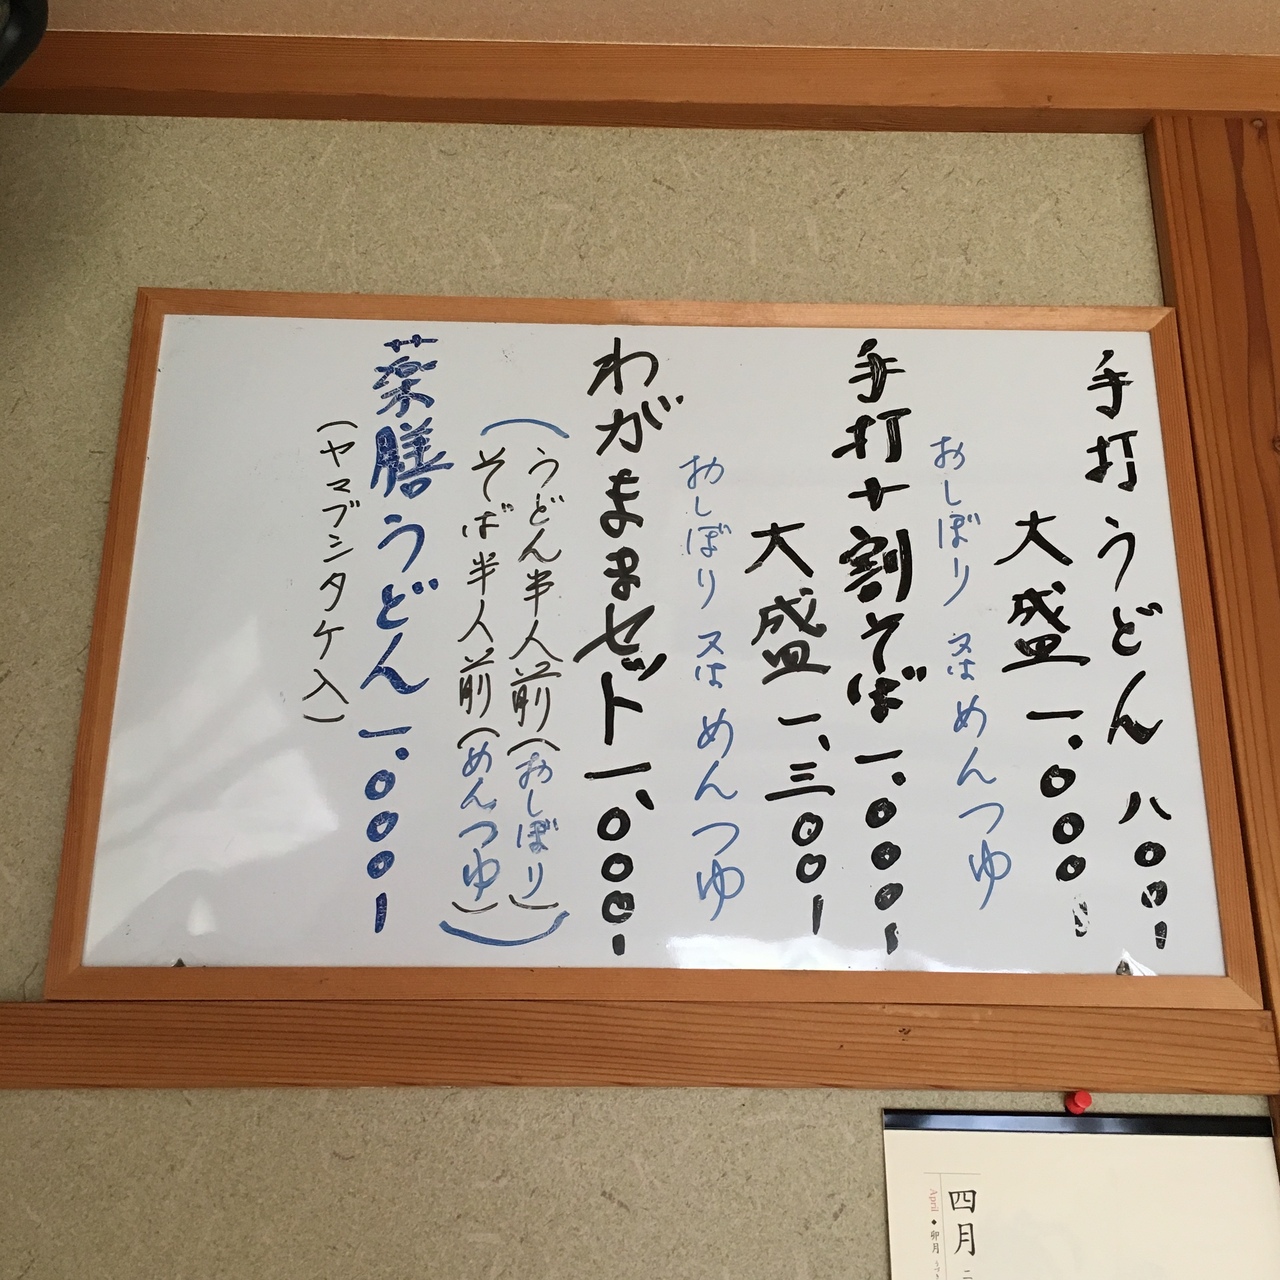 手打うどん 八〇〇、
大盛 一、〇〇〇、
おしぼり 又は めんつゆ
手打十割そば 一、〇〇〇、
大盛 一、三〇〇、
おしぼり 又は めんつゆ
わがままセット 一、〇〇〇、
(うどん半人前(おしぼり)
そば半人前(めんつゆ))
薬膳うどん 一、〇〇〇、
(ヤマブシタケ入)
四月
April ◆ 卯月